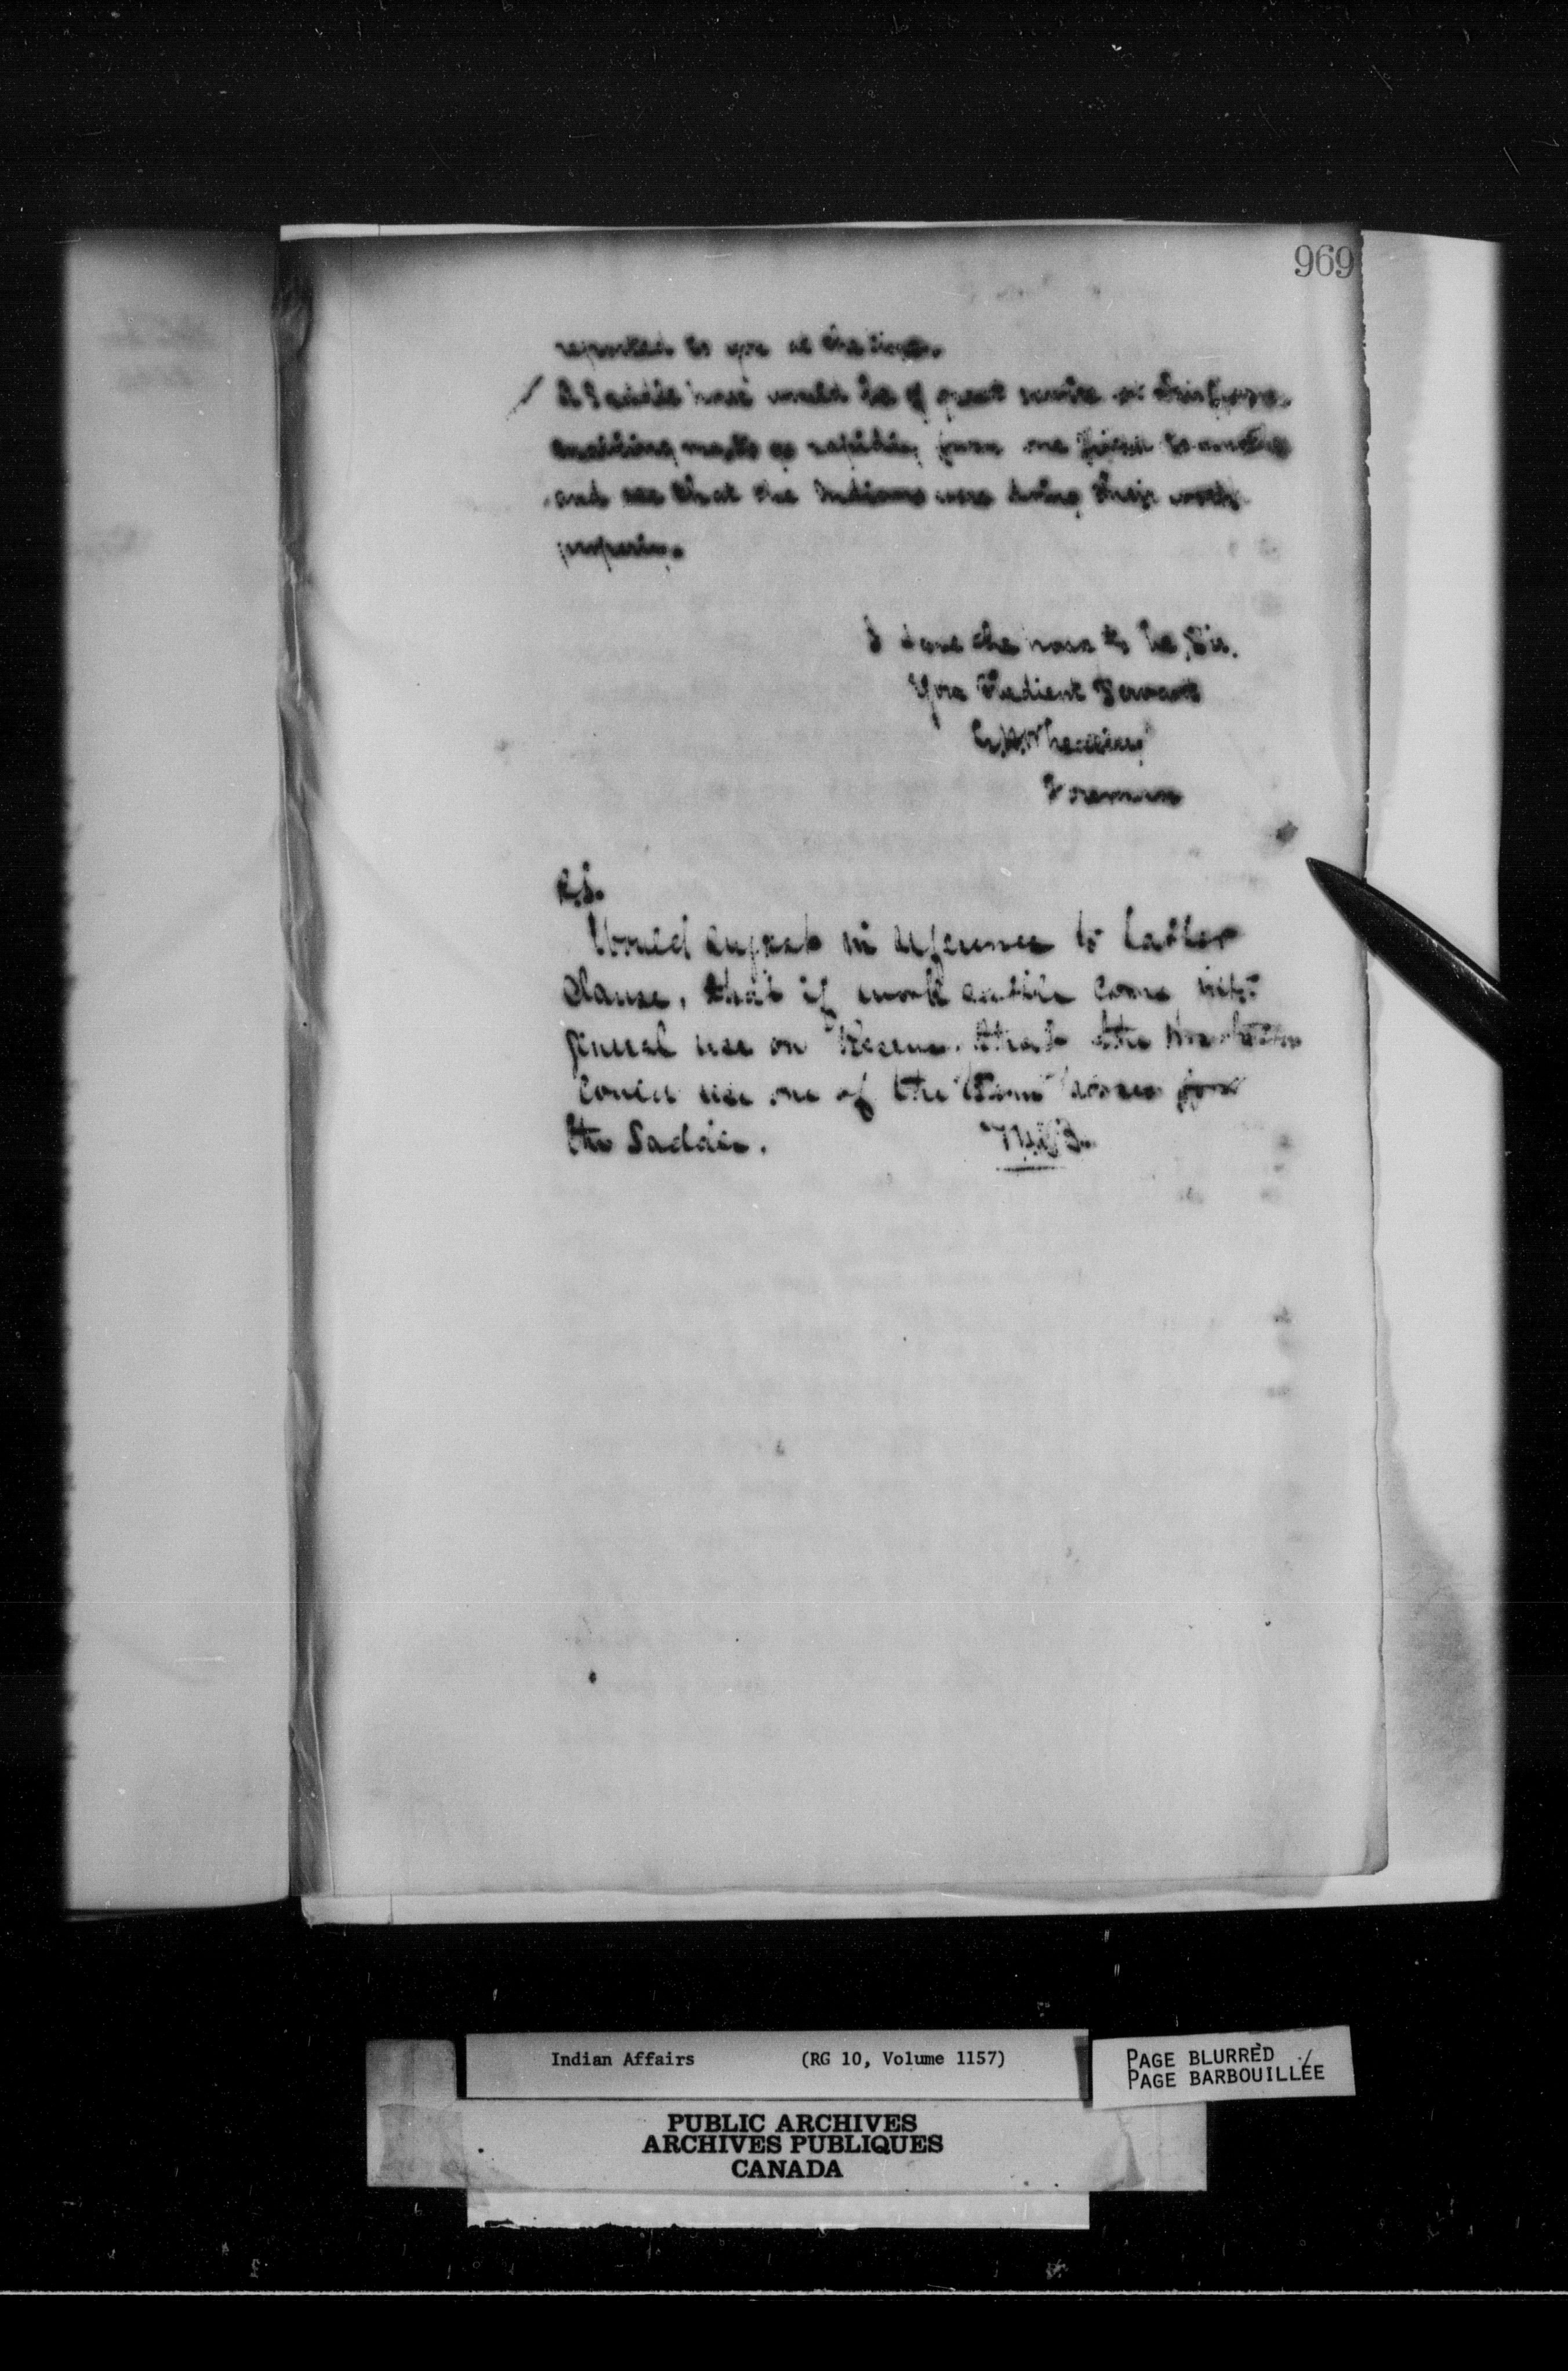 969
reported to you at the time.
A Saddle horse would be of great service on this Reserve
enabling me to go rapidly from one field to another
and see that the Indians were doing their work
properly.
I have the honor to be, Sir.
Your Obedient Servant
Foreman
P.S.
Would suggest in reference to latter
Clause, that if work cattle come into
general use on Reserve, that the
could use one of the team horses for
the Saddle.
Indian Affairs (RG 10, Volume 1157)
PAGE BLURRED
PAGE BARBOUILLÉE
PUBLIC ARCHIVES
ARCHIVES PUBLIQUES
CANADA